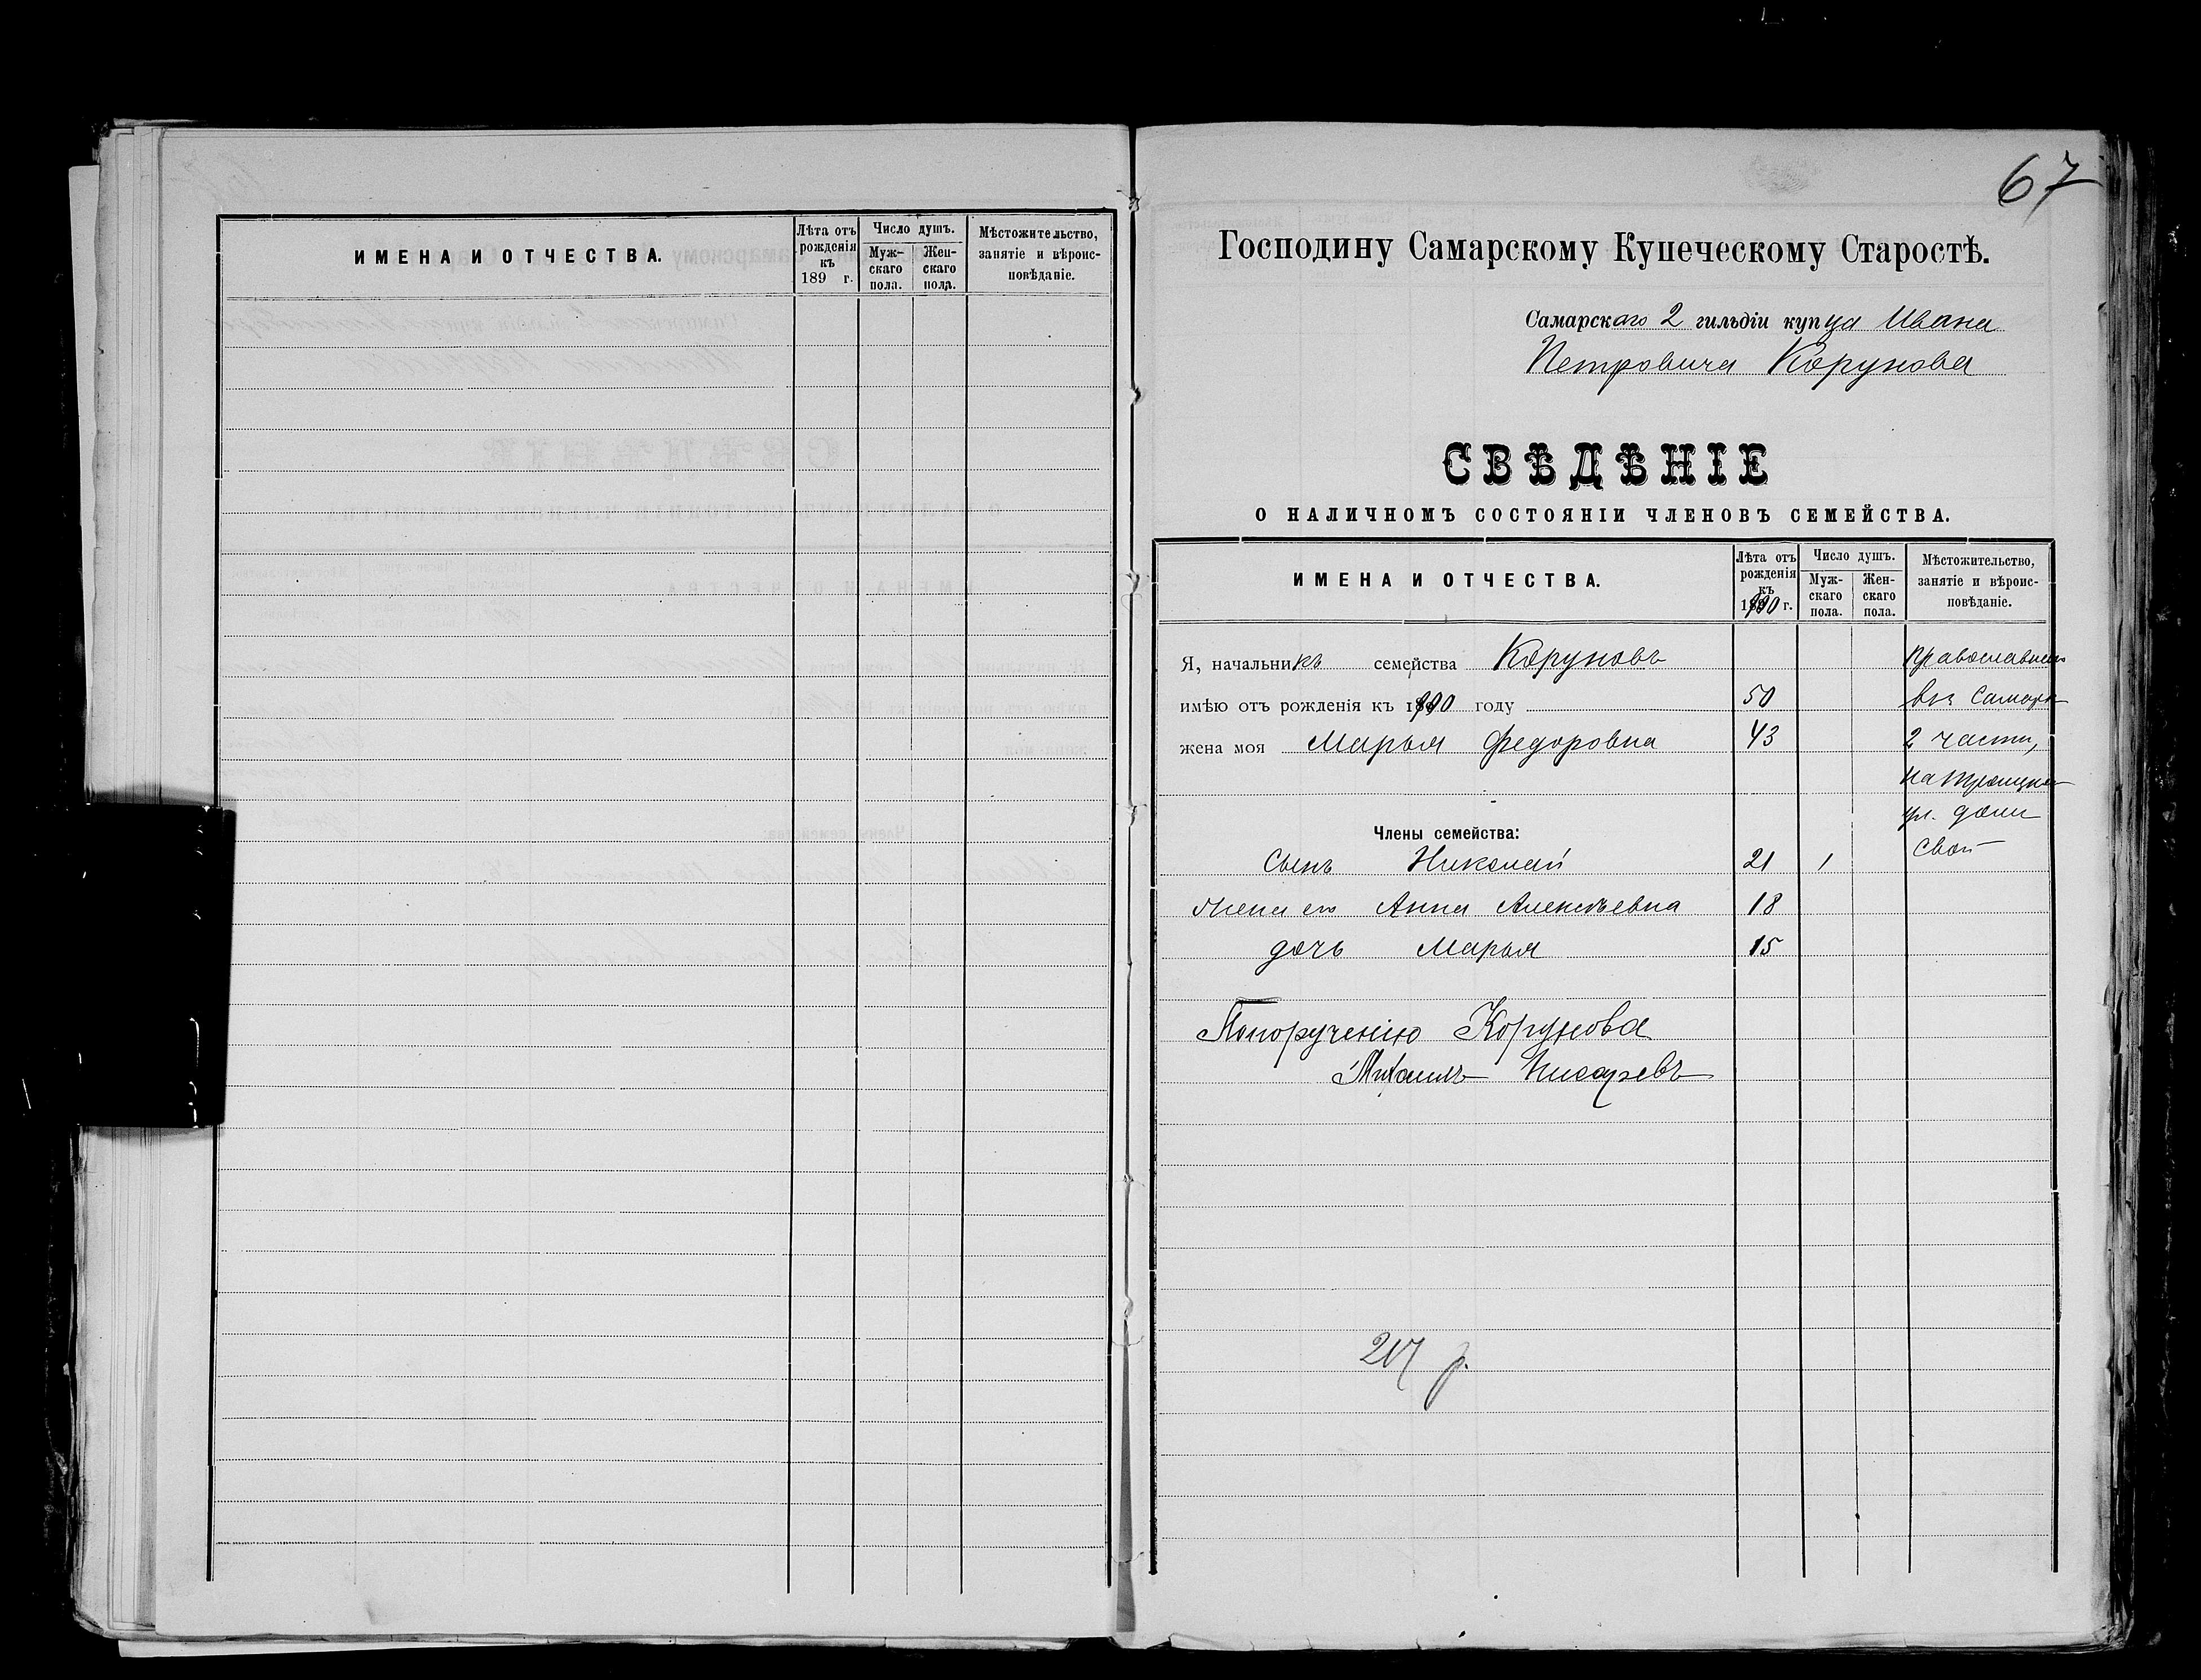 ИМЕНА И ОТЧЕСТВА.
Лѣта отъ рожденія къ 189 г.
Число душъ.
Муж-скаго пола.
Жен-скаго пола.
Мѣстожительство, занятіе и вѣроис-повѣданіе.
67
Господину Самарскому Купеческому Старостѣ.
Самарскаго 2 гильдіи купца Ивана
Петровича Корунова
СВѢДѢНІЕ
О НАЛИЧНОМЪ СОСТОЯНІИ ЧЛЕНОВЪ СЕМЕЙСТВА.
ИМЕНА И ОТЧЕСТВА.
Лѣта отъ рожденія къ 1900 г.
Число душъ.
Муж-скаго пола.
Жен-скаго пола.
Мѣстожительство, занятіе и вѣроис-повѣданіе.
Я, начальникъ семейства Коруновъ
имѣю отъ рожденія къ 1900 году 50
жена моя Марья Федоровна 43
Члены семейства:
Сынъ Николай 21 1
Жена его Анна Алексѣевна 18
дочь Марья 15
въ Самарѣ
2 части,
ул. домъ
свой
По порученію Корунова
Михаилъ Писаревъ
217 р.